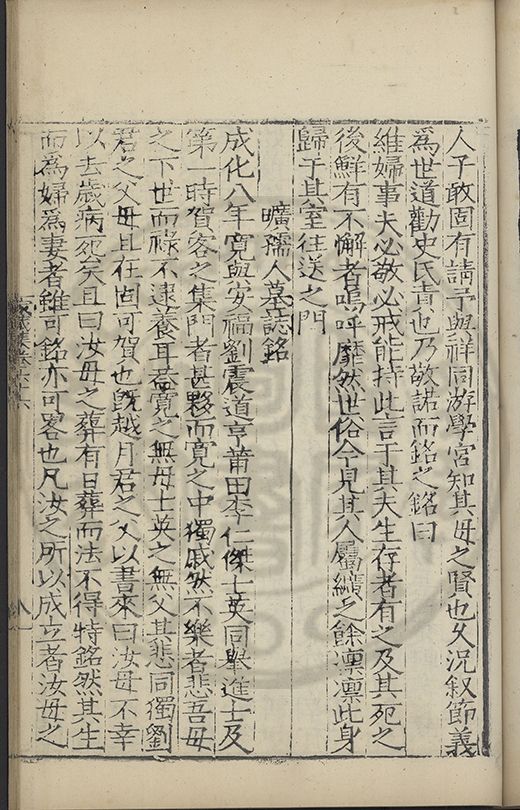 人子敢固有請予與祥同游學宮知其母之賢也夂況叙節義
為世道勸史氏責也乃敬諾而銘之銘曰
維婦事夫必敬必戒能持此言于其夫生存者有之及其死之
後鮮有不懈者嗚呼靡然世俗今見其人屬纊之餘凛凛此身
歸于其室往送之門
曠孺人墓誌銘
成化八年寛與安福劉震道亨莆田李仁傑士英同舉進士及
第一時賀客之集門者甚夥而寛之中獨戚然不樂者悲吾母
之下世而祿不逮養耳葢寛之無母士英之無父其悲同獨劉
君之父母且在固可賀也既越月君之父以書來曰汝母不幸
以去歲病死矣且曰汝母之葬有日葬而法不得特銘然其生
而為婦為妻者雖可銘亦可畧也凡汝之所以成立者汝母之